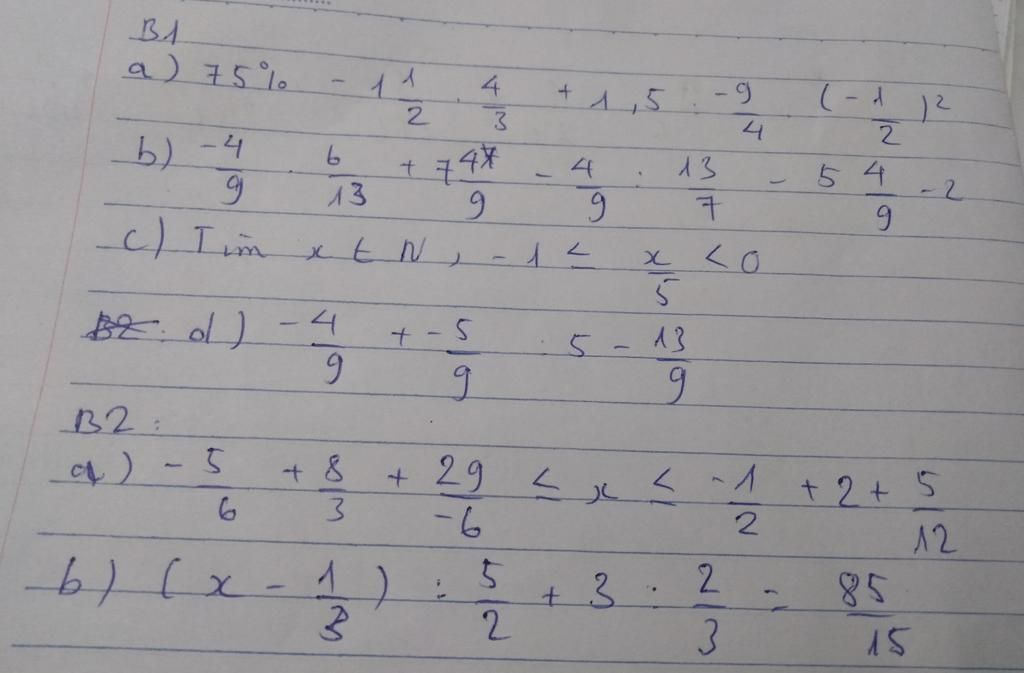 B1
a) 75% - 1 1/2 . 4/3 + 1,5 . -9/4 . (-1/2)²
b) -4/9 . 6/13 + 7 4/9 - 4/9 : 13/7 - 5 4/9 - 2
c) Tìm x ∈ N, -1 ≤ x/5 < 0
d) -4/9 + -5/9 : 5 - 13/9
B2:
a) -5/6 + 8/3 + 29/-6 ≤ x ≤ -1/2 + 2 + 5/12
b) (x - 1/3) : 5/2 + 3 : 2/3 = 85/15